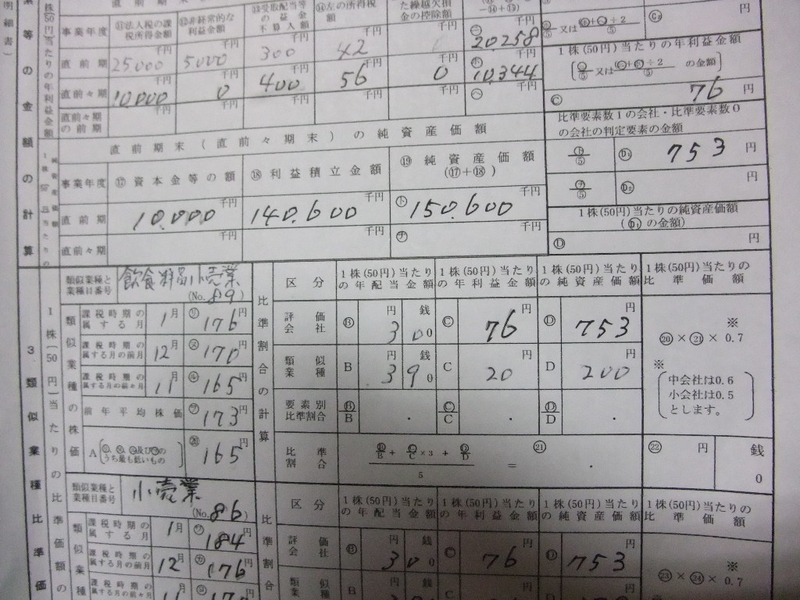 ⑪法人税の課税所得金額 ⑫非経常的な利益金額 ⑬受取配当等の益金不算入額 ⑭左の所得税額 た繰越欠損金の控除額
事業年度
直前期 25000千円 5000千円 300千円 42千円 20258
直前々期 10000千円 0千円 400千円 56千円 0千円 10,344千円
直前々期の前期 千円 千円 千円 千円 千円
1株(50円)当たりの年利益金額
又は の金額
Ⓒ 76円
比準要素数1の会社・比準要素数0の会社の判定要素の金額
753円
円
1株(50円)当たりの純資産価額
の金額
Ⓓ 円
直前期末(直前々期末)の純資産価額
事業年度 ⑰資本金等の額 ⑱利益積立金額 ⑲純資産価額(⑰+⑱)
直前期 10,000千円 140,600千円 ㋣ 150,600千円
直前々期 千円 千円 ㋠ 千円
等の金額の計算
3 類似業種比準価
類似業種と業種目番号 飲食料品小売業 (No. 89)
区分 1株(50円)当たりの年配当金額 1株(50円)当たりの年利益金額 1株(50円)当たりの純資産価額 1株(50円)当たりの比準価額
課税時期の属する月 1月 176円
課税時期の属する月の前月 12月 170円
課税時期の属する月の前々月 11月 165円
前年平均株価 173円
A のうち最も低いもの ⑳ 165円
類似業種の株価
比準割合の計算
評価会社 Ⓑ 3円00銭 Ⓒ 76円 Ⓓ 753円
類似業種 B 3円90銭 C 20円 D 200円
要素別比準割合 Ⓑ/B . Ⓒ/C . Ⓓ/D .
比準割合 Ⓑ/B + Ⓒ/C ×3 + Ⓓ/D / 5 = ㉑ .
⑳×㉑×0.7
※
中会社は0.6
小会社は0.5
とします。
㉒ 円 銭 0
類似業種と業種目番号 小売業 (No. 86)
区分 1株(50円)当たりの年配当金額 1株(50円)当たりの年利益金額 1株(50円)当たりの純資産価額 1株(50円)当たりの比準価額
課税時期の属する月 1月 184円
課税時期の属する月の前月 12月 176円
課税時期の 11月
評価会社 Ⓑ 3円00銭 Ⓒ 76円 Ⓓ 753円
類似業種 B C D
㉓×㉔×0.7
※